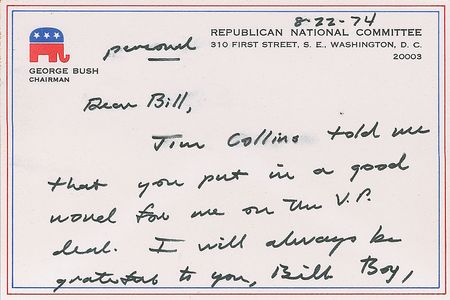 8-22-74
REPUBLICAN NATIONAL COMMITTEE
310 FIRST STREET, S. E., WASHINGTON, D. C.
20003
personal
GEORGE BUSH
CHAIRMAN
Dear Bill,
Jim Collins told me
that you put in a good
word for me on the V.P.
deal. I will always be
grateful to you, Bill Boy,